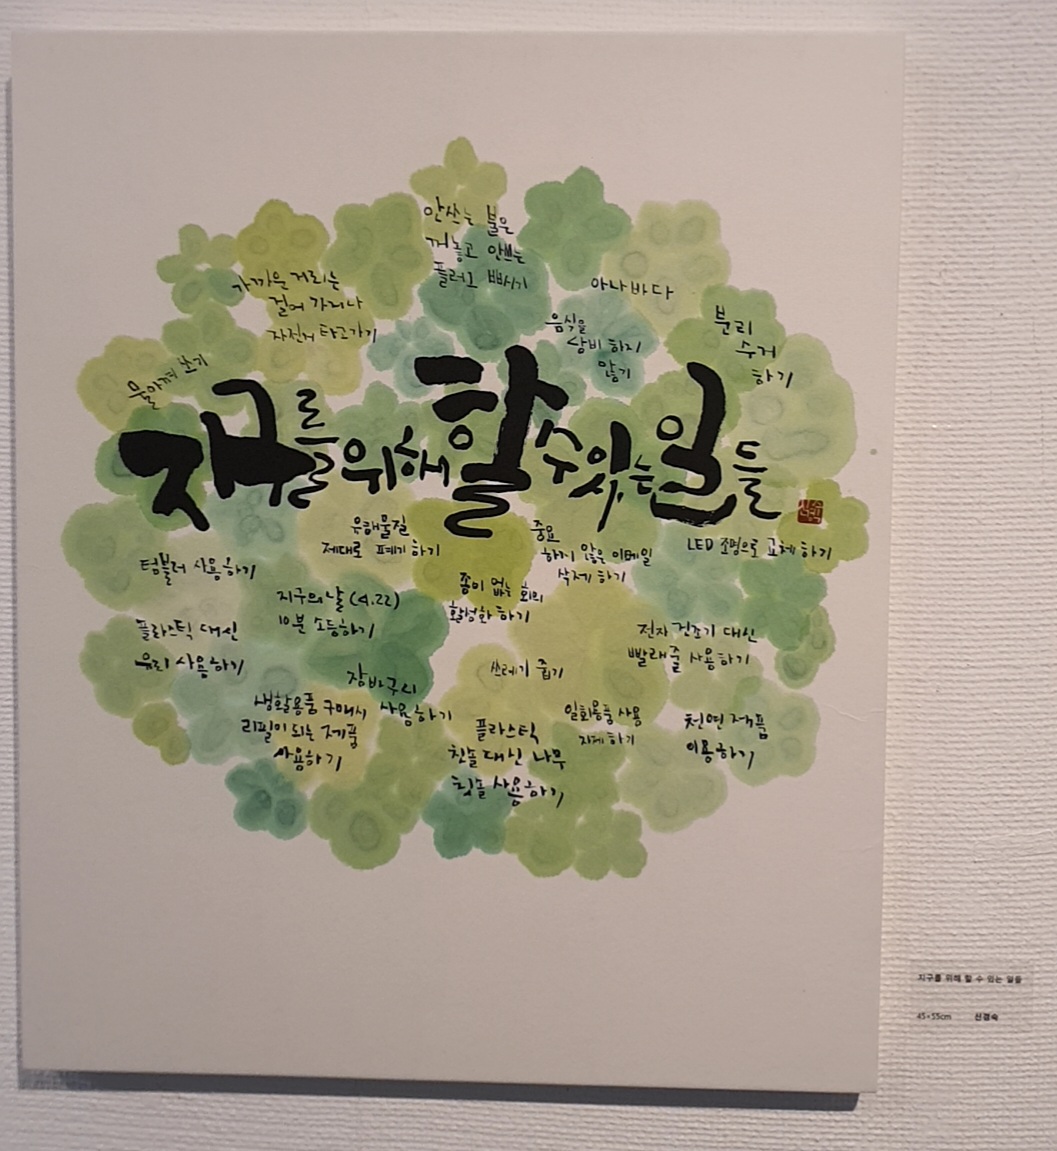 안쓰는 불은
꺼놓고 안쓰는
플러그 빼기
가까운 거리는
걸어 가거나
자전거 타고가기
아나바다
음식을
낭비 하지
않기
분리
수거
하기
물 아껴 쓰기
지구를 위해 할 수 있는 일들
유해물질
제대로 폐기 하기
중요
하지 않은 이메일
삭제 하기
LED 조명으로 교체 하기
텀블러 사용하기
종이 없는 회의
활성화 하기
지구의 날 (4.22)
10분 소등하기
플라스틱 대신
유리 사용하기
전자 건조기 대신
빨래줄 사용하기
쓰레기 줍기
장바구니
사용하기
생활용품 구매시
리필이 되는 제품
사용하기
플라스틱
칫솔 대신 나무
칫솔 사용하기
일회용품 사용
자제 하기
천연 제품
이용하기
지구를 위해 할 수 있는 일들
45×55cm 신경숙